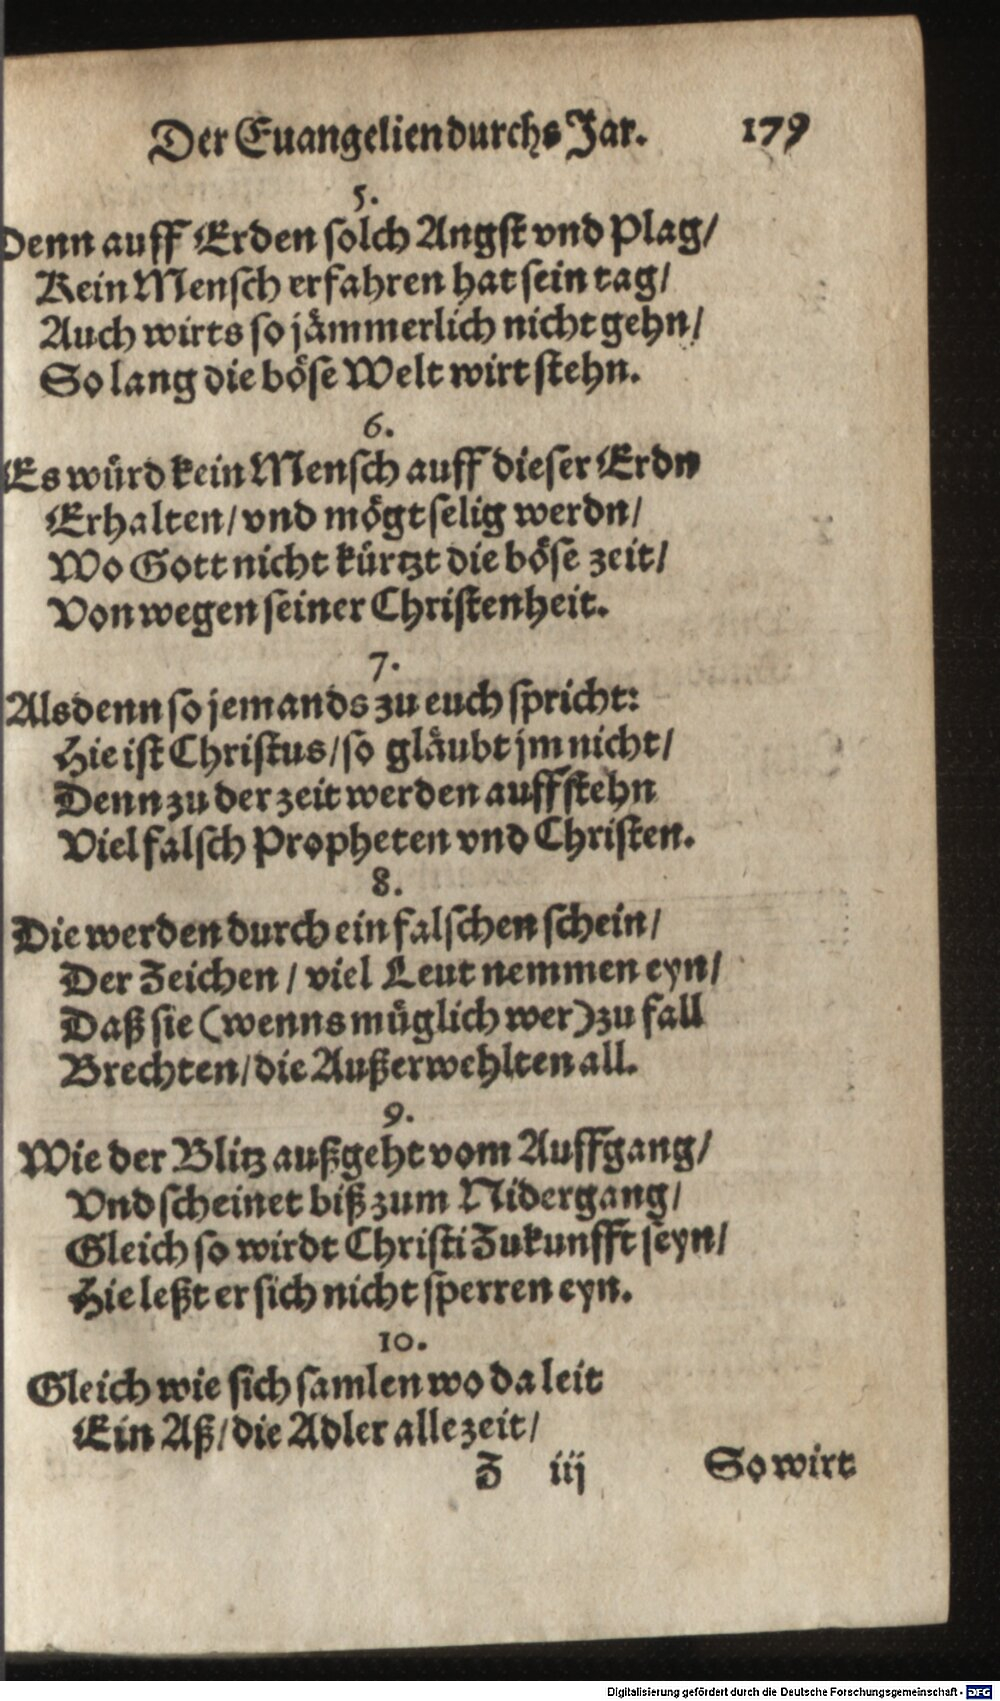 Der Euangelien durchs Jar. 179
5.
Denn auff Erden solch Angst vnd Plag/
Kein Mensch erfahren hat sein tag/
Auch wirts so jämmerlich nicht gehn/
So lang die böse Welt wirt stehn.
6.
Es würd kein Mensch auff dieser Erdn
Erhalten/ vnd mögt selig werdn/
Wo Gott nicht kürtzt die böse zeit/
Von wegen seiner Christenheit.
7.
Alsdenn so jemands zu euch spricht:
Hie ist Christus/ so gläubt jm nicht/
Denn zu der zeit werden auffstehn
Viel falsch Propheten vnd Christen.
8.
Die werden durch ein falschen schein/
Der Zeichen/ viel Leut nemmen eyn/
Daß sie (wenns müglich wer) zu fall
Brechten/ die Außerwehlten all.
9.
Wie der Blitz außgeht vom Auffgang/
Vnd scheinet biß zum Nidergang/
Gleich so wirdt Christi Zukunfft seyn/
Hie leßt er sich nicht sperren eyn.
10.
Gleich wie sich samlen wo da leit
Ein Aß/ die Adler allezeit/
Z iij So wirt
Digitalisierung gefördert durch die Deutsche Forschungsgemeinschaft - DFG